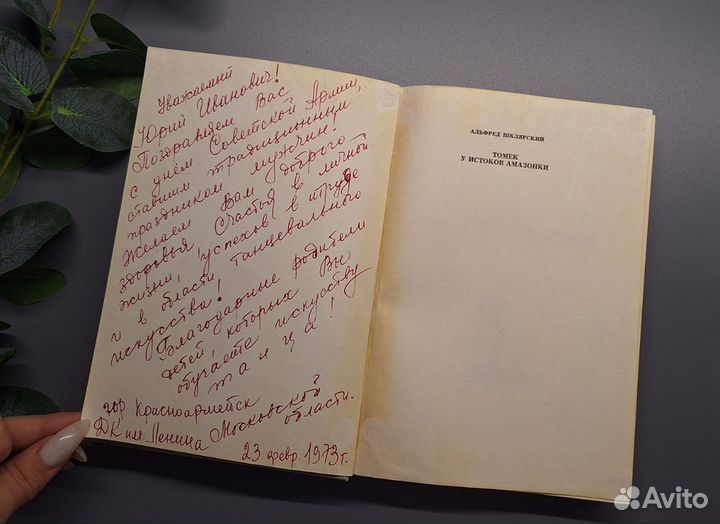 Уважаемый
Юрий Иванович!
Поздравляем Вас
с днём Советской Армии,
ставшим традиционным
праздником мужчин!
Желаем Вам доброго
здоровья, счастья в личной
жизни, успехов в труде
и в области танцевального
искусства!
Благодарные родители
детей, которых Вы
обучаете искусству
танца!
гор. Красноармейск
ДК им. Ленина Московской области.
23 февр. 1973 г.
АЛЬФРЕД ШКЛЯРСКИЙ
ТОМЕК
У ИСТОКОВ АМАЗОНКИ
Avito